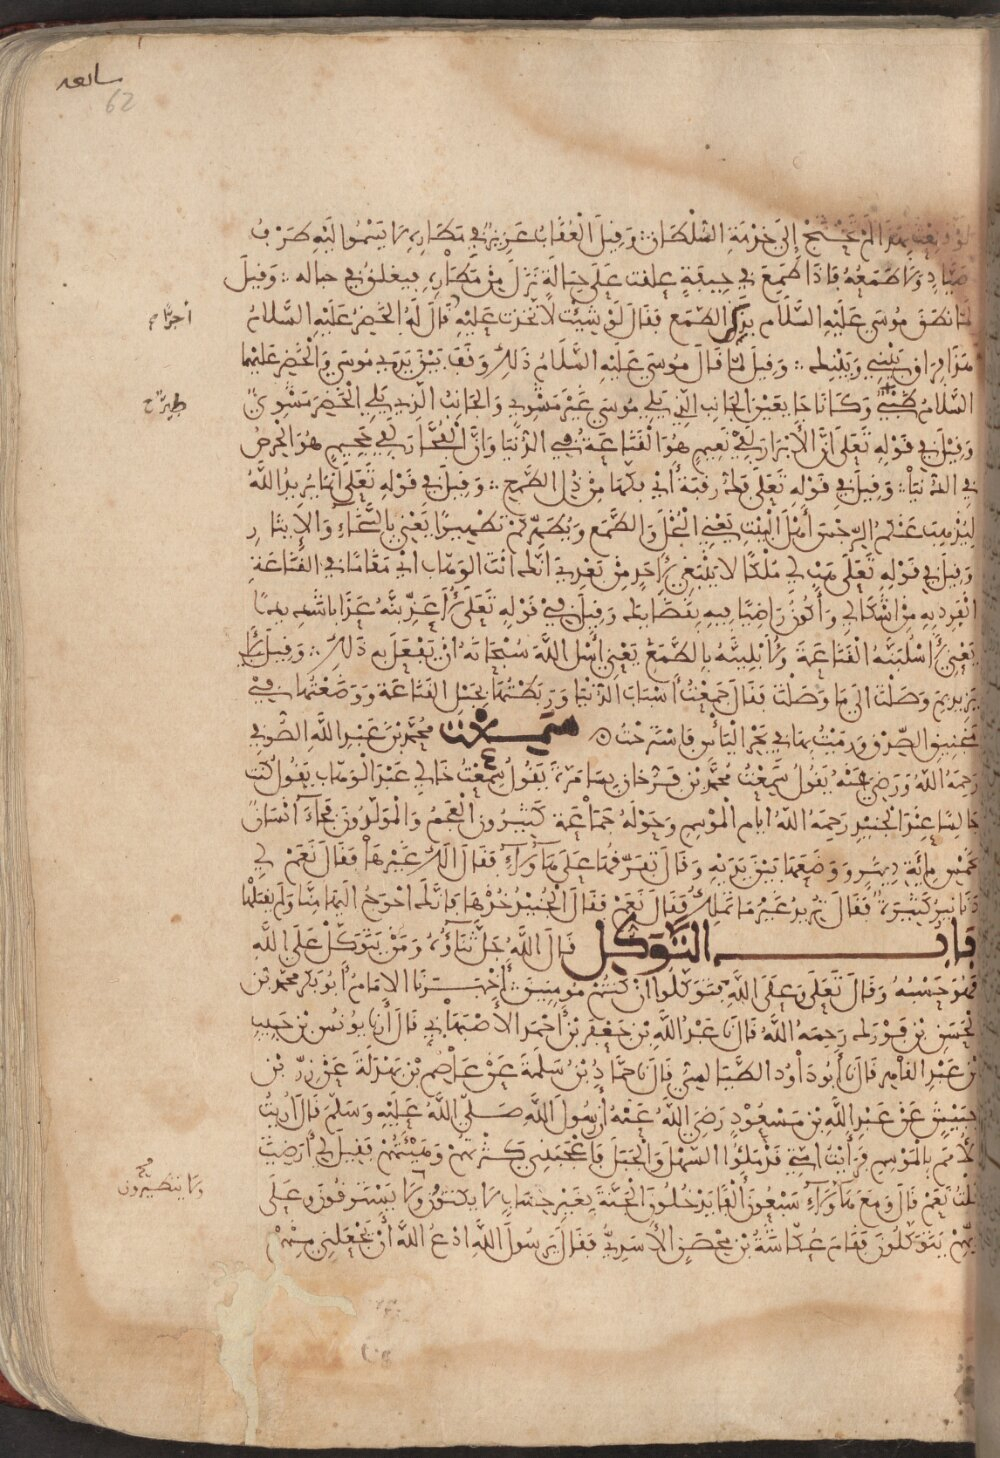 سابعة
62
لو قنعت بهذا لم تحتج إلى خدمة السلطان وقيل العقاب عزيز في مطاره لا يسموا إليه طرف
صياد ولا طمعه فإذا طمع في جيفة علقت على حبالة نزل من مطاره فيعلق في حباله وقيل
لما نطق موسى عليه السلام بذكر الطمع فقال لو شئت لاتخذت عليه أجرا قال له الخضر عليه السلام
أجرا صح
هذا فراق بيني وبينك وقيل لما قال موسى عليه السلام ذلك وقف بين يدي موسى والخضر عليهما
السلام ظبي وكانا جايعين الجانب الذي يلي موسى غير مشوي والجانب الذي يلي الخضر مشوي
وقيل في قوله تعلى إن الأبرار لفي نعيم هو القناعة في الدنيا وإن الفجار لفي جحيم هو الحرص
في الدنيا وقيل في قوله تعلى فك رقبة أي فكها من ذل الطمع وقيل في قوله تعلى إنما يريد الله
ليذهب عنكم الرجس أهل البيت يعني البخل والطمع ويطهركم تطهيرا يعني بالسخاء والإيثار
وقيل في قوله تعلى هب لي ملكا لا ينبغي لأحد من بعدي إنك أنت الوهاب أي مقاما في القناعة
انفرد به من اشكالي وأكون راضيا فيه بقضايك وقيل في قوله تعلى لأعذبنه عذابا شديدا
يعني لأسلبنه القناعة ولأبلينه بالطمع يعني أسل الله سبحانه أن يفعل به ذلك وقيل لأبي
يزيد بم وصلت إلى ما وصلت فقال جمعت أسباب الدنيا وربطتها بحبل القناعة ووضعتها في
منجنيق الصدق ورميت بها في بحر اليأس فاسترحت سمعت محمد بن عبد الله الصوفي
رحمه الله ورضي عنه يقول سمعت محمد بن فرخان بسامرة يقول سمعت خالي عبد الوهاب يقول كنت
جالسا عند الجنيد رحمه الله أيام الموسم وحوله جماعة كثيرون العجم والمولدون فجاء إنسان
بخمس مائة دينر ووضعها بين يديه وقال تفرقها على هاؤلاء فقال ألك غيرها فقال نعم لي
دنانير كثيرة فقال تريد غير ما تملك فقال نعم فقال الجنيد خذها فإنك أحوج إليها منا ولم يقبلها
باب التوكل قال الله جل ثناؤه ومن يتوكل على الله
فهو حسبه وقال تعلى وعلى الله فتوكلوا إن كنتم مومنين أخبرنا الامام أبو بكر محمد بن
الحسن بن فورك رحمه الله قال نا عبد الله بن جعفر بن أحمد الأصبهاني قال نا يونس بن حبيب
بن عبد القاهر قال نا أبو داود الطيالسي قال نا حماد بن سلمة عن عاصم بن بهدلة عن زر بن
حبيش عن عبد الله بن مسعود رضي الله عنه أن رسول الله صلى الله عليه وسلم قال أريت
الأمم بالموسم فرأيت أمتي قد ملئوا السهل والجبل فأعجبني كثرتهم وهيئتهم فقيل لي أرضيت
قلت نعم قال ومع هاؤلاء سبعون ألفا يدخلون الجنة بغير حساب لا يكتوون ولا يسترقون وعلى
ولا يتطيرون صح
ربهم يتوكلون فقام عكاشة بن محصن الأسدي فقال يرسول الله ادع الله أن يجعلني منهم